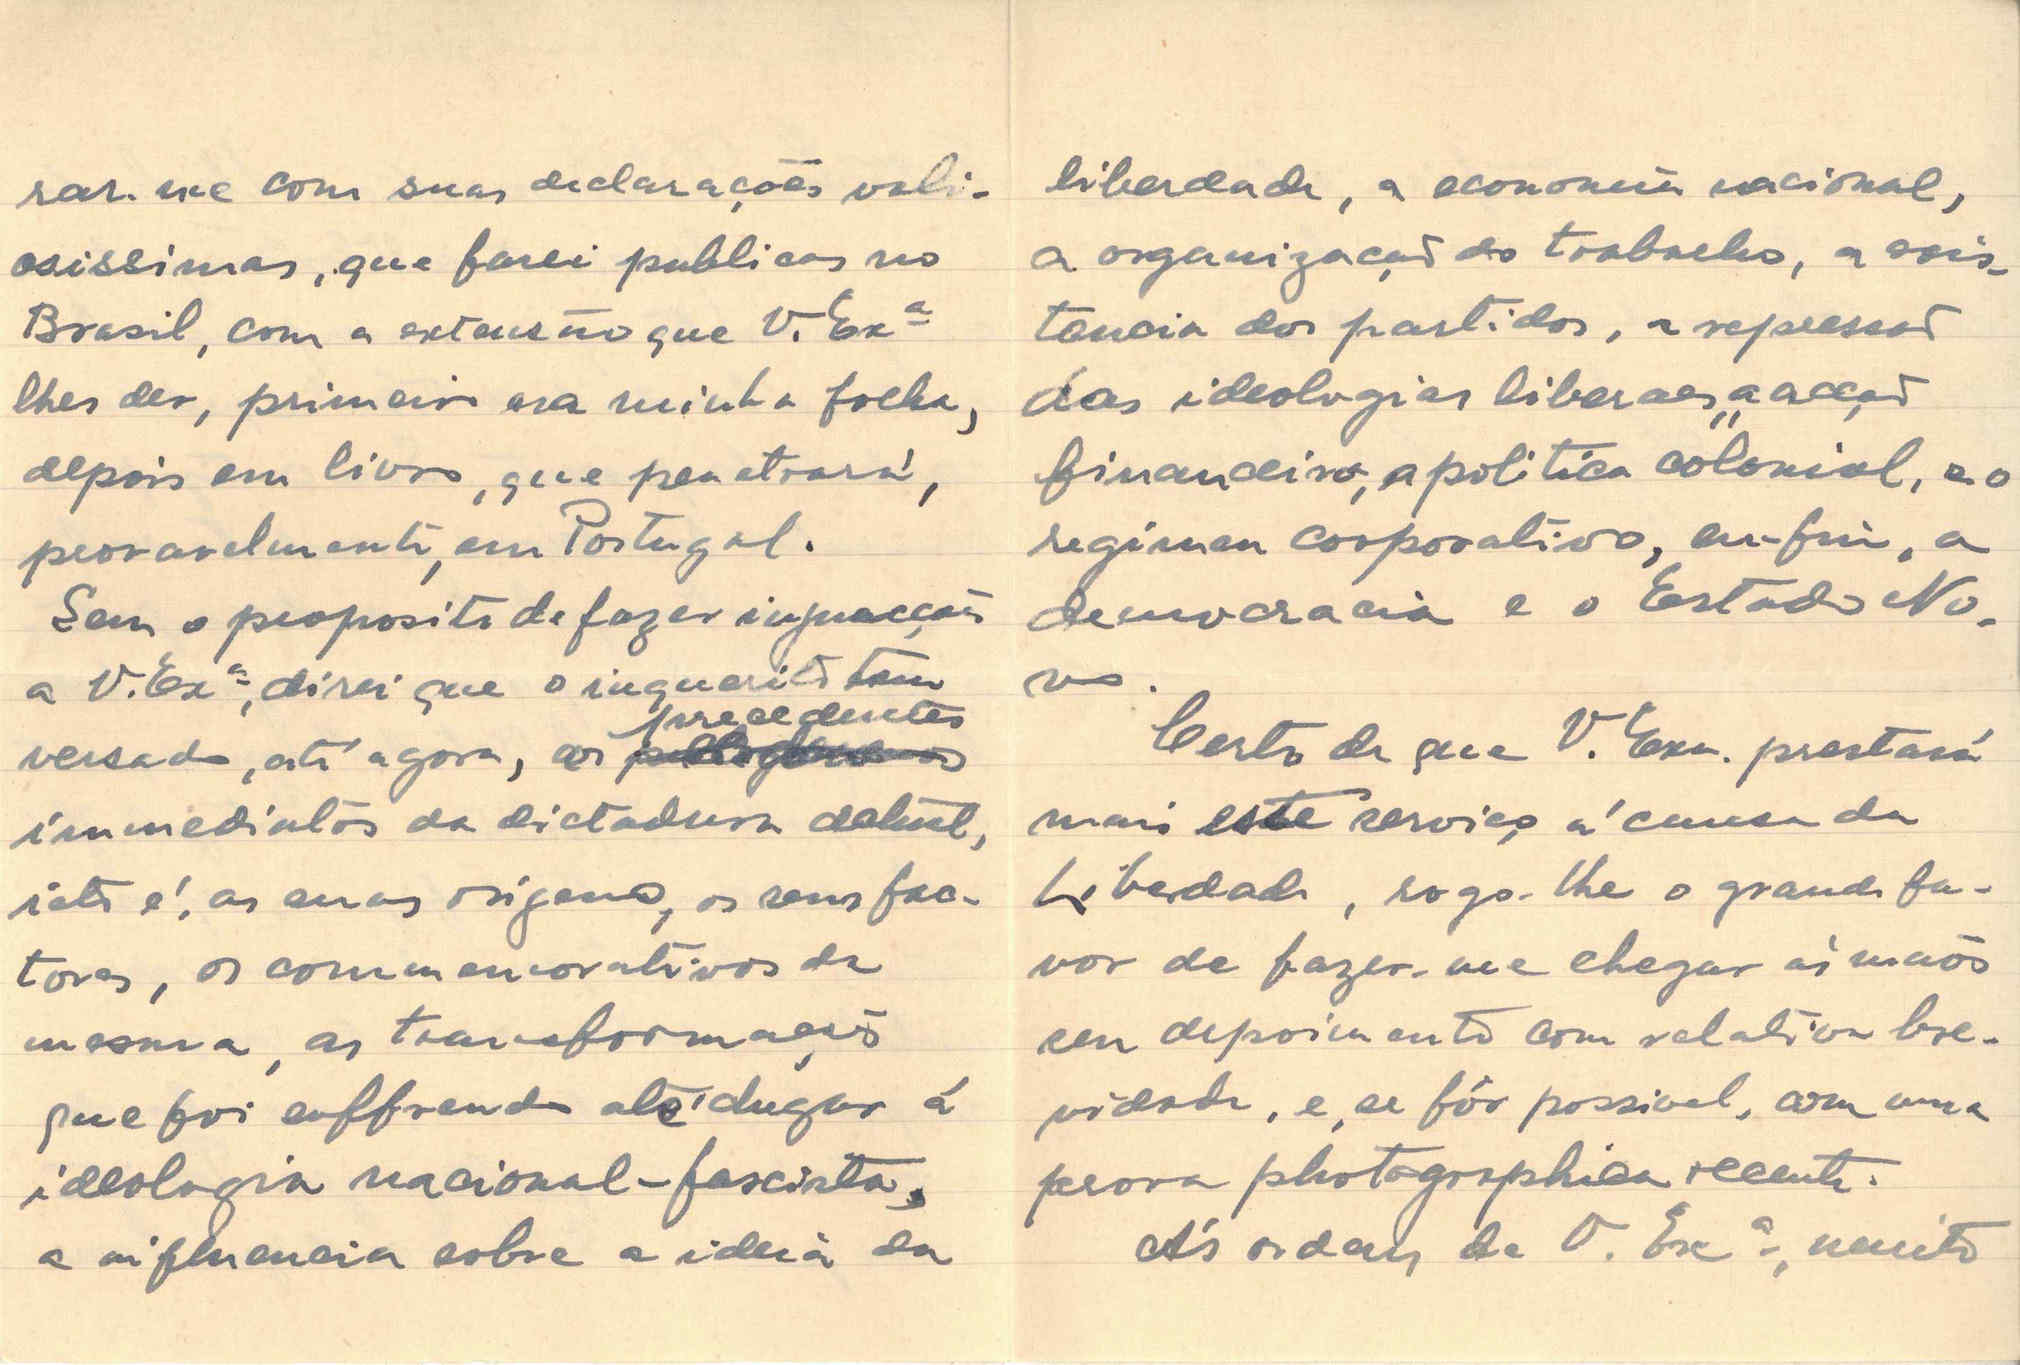 rar-me com suas declarações vali-
osissimas, que farei publicas no
Brasil, com a extensão que V. Exª
lhes der, primeiro na minha folha,
depois em livro, que penetrará,
provavelmente, em Portugal.
Sem o proposito de fazer injuncções
a V. Exª, direi que o inquerito tem
precedentes
versado, até agora, os
immediatos da dictadura actual,
isto é, as suas origens, os seus fac-
tores, os commemorativos da
mesma, as transformações
que foi soffrendo até dar lugar á
ideologia nacional-fascista,
a influencia sobre a ideia da
liberdade, a economia nacional,
a organização do trabalho, a exis-
tencia dos partidos, a repressão
das ideologias liberaes, a acção
financeira, a politica colonial, e o
regimen corporativo, em-fim, a
democracia e o Estado No-
vo.
Certo de que V. Exa. prestará
mais este serviço á causa da
Liberdade, rogo-lhe o grande fa-
vor de fazer-me chegar ás mãos
seu depoimento com relativa bre-
vidade, e, se fôr possivel, com uma
prova photographica recente.
A's ordens de V. Exª, muito